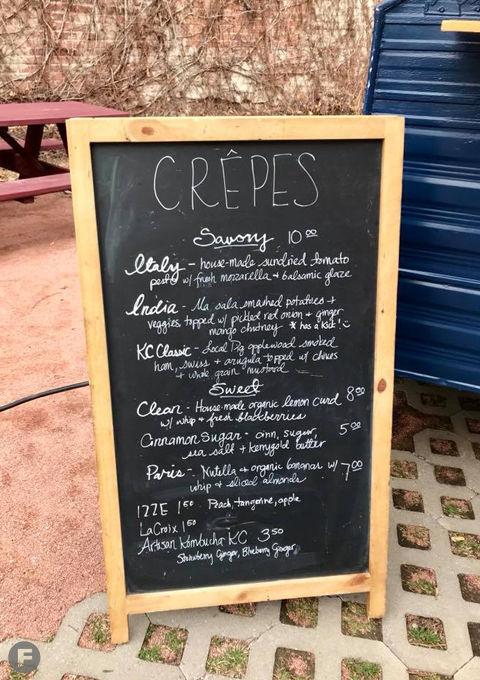 CRÊPES
Savory 10.00
Italy - house-made sundried tomato
pesto w/ fresh mozzarella + balsamic glaze
India - Masala smashed potatoes +
veggies, topped w/ pickled red onion + ginger
mango chutney *has a kick!
KC Classic - Local Pig applewood smoked
ham, swiss + arugula topped w/ chives
+ whole grain mustard
Sweet
Clean - House-made organic lemon curd 8.00
w/ whip + fresh blackberries
Cinnamon Sugar - cinn, sugar, 5.00
sea salt + kerrygold butter
Paris - Nutella + organic bananas w/ 7.00
whip + sliced almonds
IZZE 1.50 Peach, tangerine, apple
LaCroix 1.50
Artisan Kombucha KC 3.50
Strawberry Ginger, Blueberry Ginger
F